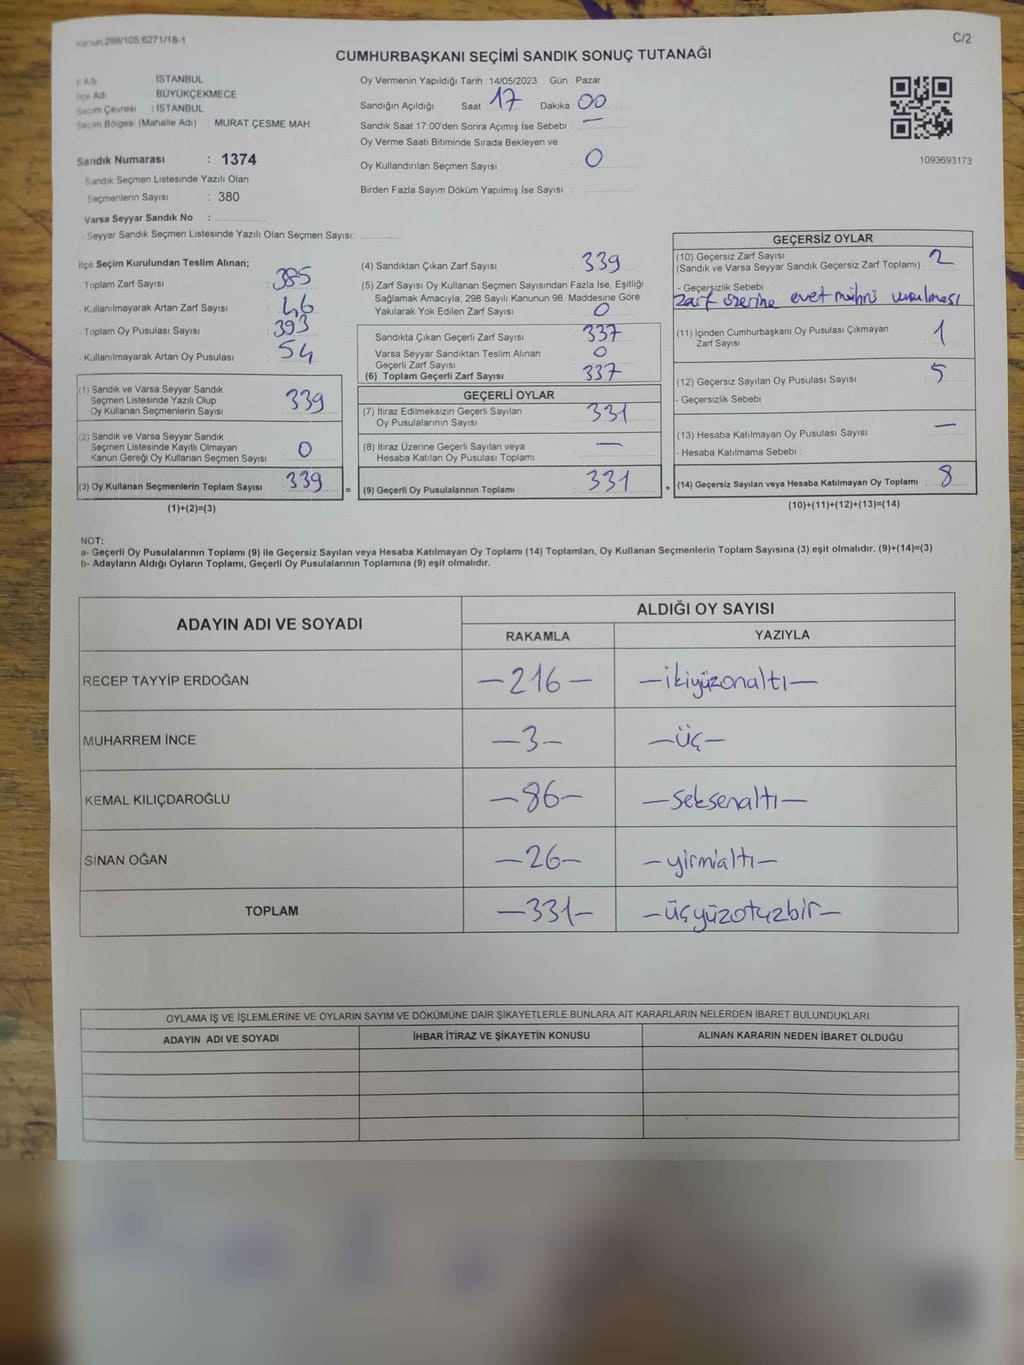 Kanun,298/105 6271/18-1
C/2
CUMHURBAŞKANI SEÇİMİ SANDIK SONUÇ TUTANAĞI
İl Adı İSTANBUL
İlçe Adı BÜYÜKÇEKMECE
Seçim Çevresi : İSTANBUL
Seçim Bölgesi (Mahalle Adı) : MURAT ÇESME MAH.
Sandık Numarası : 1374
Sandık Seçmen Listesinde Yazılı Olan
Seçmenlerin Sayısı : 380
Varsa Seyyar Sandık No :
- Seyyar Sandık Seçmen Listesinde Yazılı Olan Seçmen Sayısı:
Oy Vermenin Yapıldığı Tarih : 14/05/2023 Gün : Pazar
Sandığın Açıldığı Saat 17 Dakika 00
Sandık Saat 17:00'den Sonra Açımış İse Sebebi : —
Oy Verme Saati Bitiminde Sırada Bekleyen ve
Oy Kullandırılan Seçmen Sayısı 0
Birden Fazla Sayım Döküm Yapılmış İse Sayısı :
1093693173
İlçe Seçim Kurulundan Teslim Alınan;
Toplam Zarf Sayısı : 385
- Kullanılmayarak Artan Zarf Sayısı : 46
- Toplam Oy Pusulası Sayısı : 393
- Kullanılmayarak Artan Oy Pusulası : 54
(1) Sandık ve Varsa Seyyar Sandık
Seçmen Listesinde Yazılı Olup
Oy Kullanan Seçmenlerin Sayısı 339
(2) Sandık ve Varsa Seyyar Sandık
Seçmen Listesinde Kayıtlı Olmayan
Kanun Gereği Oy Kullanan Seçmen Sayısı 0
(3) Oy Kullanan Seçmenlerin Toplam Sayısı : 339
(1)+(2)=(3)
=
(4) Sandıktan Çıkan Zarf Sayısı : 339
(5) Zarf Sayısı Oy Kullanan Seçmen Sayısından Fazla İse, Eşitliği
Sağlamak Amacıyla, 298 Sayılı Kanunun 98. Maddesine Göre
Yakılarak Yok Edilen Zarf Sayısı : 0
Sandıkta Çıkan Geçerli Zarf Sayısı : 337
Varsa Seyyar Sandıktan Teslim Alınan
Geçerli Zarf Sayısı : 0
(6) Toplam Geçerli Zarf Sayısı : 337
GEÇERLİ OYLAR
(7) İtiraz Edilmeksizin Geçerli Sayılan
Oy Pusulalarının Sayısı : 331
(8) İtiraz Üzerine Geçerli Sayılan veya
Hesaba Katılan Oy Pusulası Toplamı : —
(9) Geçerli Oy Pusulalarının Toplamı : 331
+
GEÇERSİZ OYLAR
(10) Geçersiz Zarf Sayısı : 2
(Sandık ve Varsa Seyyar Sandık Geçersiz Zarf Toplamı)
- Geçersizlik Sebebi
zarf üzerine evet mührü vurulması
(11) İçinden Cumhurbaşkanı Oy Pusulası Çıkmayan
Zarf Sayısı 1
(12) Geçersiz Sayılan Oy Pusulası Sayısı : 5
- Geçersizlik Sebebi
(13) Hesaba Katılmayan Oy Pusulası Sayısı : —
- Hesaba Katılmama Sebebi :
(14) Geçersiz Sayılan veya Hesaba Katılmayan Oy Toplamı : 8
(10)+(11)+(12)+(13)=(14)
NOT:
a- Geçerli Oy Pusulalarının Toplamı (9) ile Geçersiz Sayılan veya Hesaba Katılmayan Oy Toplamı (14) Toplamları, Oy Kullanan Seçmenlerin Toplam Sayısına (3) eşit olmalıdır. (9)+(14)=(3)
b- Adayların Aldığı Oyların Toplamı, Geçerli Oy Pusulalarının Toplamına (9) eşit olmalıdır.
ADAYIN ADI VE SOYADI
ALDIĞI OY SAYISI
RAKAMLA YAZIYLA
RECEP TAYYİP ERDOĞAN —216— —ikiyüzonaltı—
MUHARREM İNCE —3— —üç—
KEMAL KILIÇDAROĞLU —86— —seksenaltı—
SİNAN OĞAN —26— —yirmialtı—
TOPLAM —331— —üçyüzotuzbir—
OYLAMA İŞ VE İŞLEMLERİNE VE OYLARIN SAYIM VE DÖKÜMÜNE DAİR ŞİKAYETLERLE BUNLARA AİT KARARLARIN NELERDEN İBARET BULUNDUKLARI
ADAYIN ADI VE SOYADI İHBAR İTİRAZ VE ŞİKAYETİN KONUSU ALINAN KARARIN NEDEN İBARET OLDUĞU